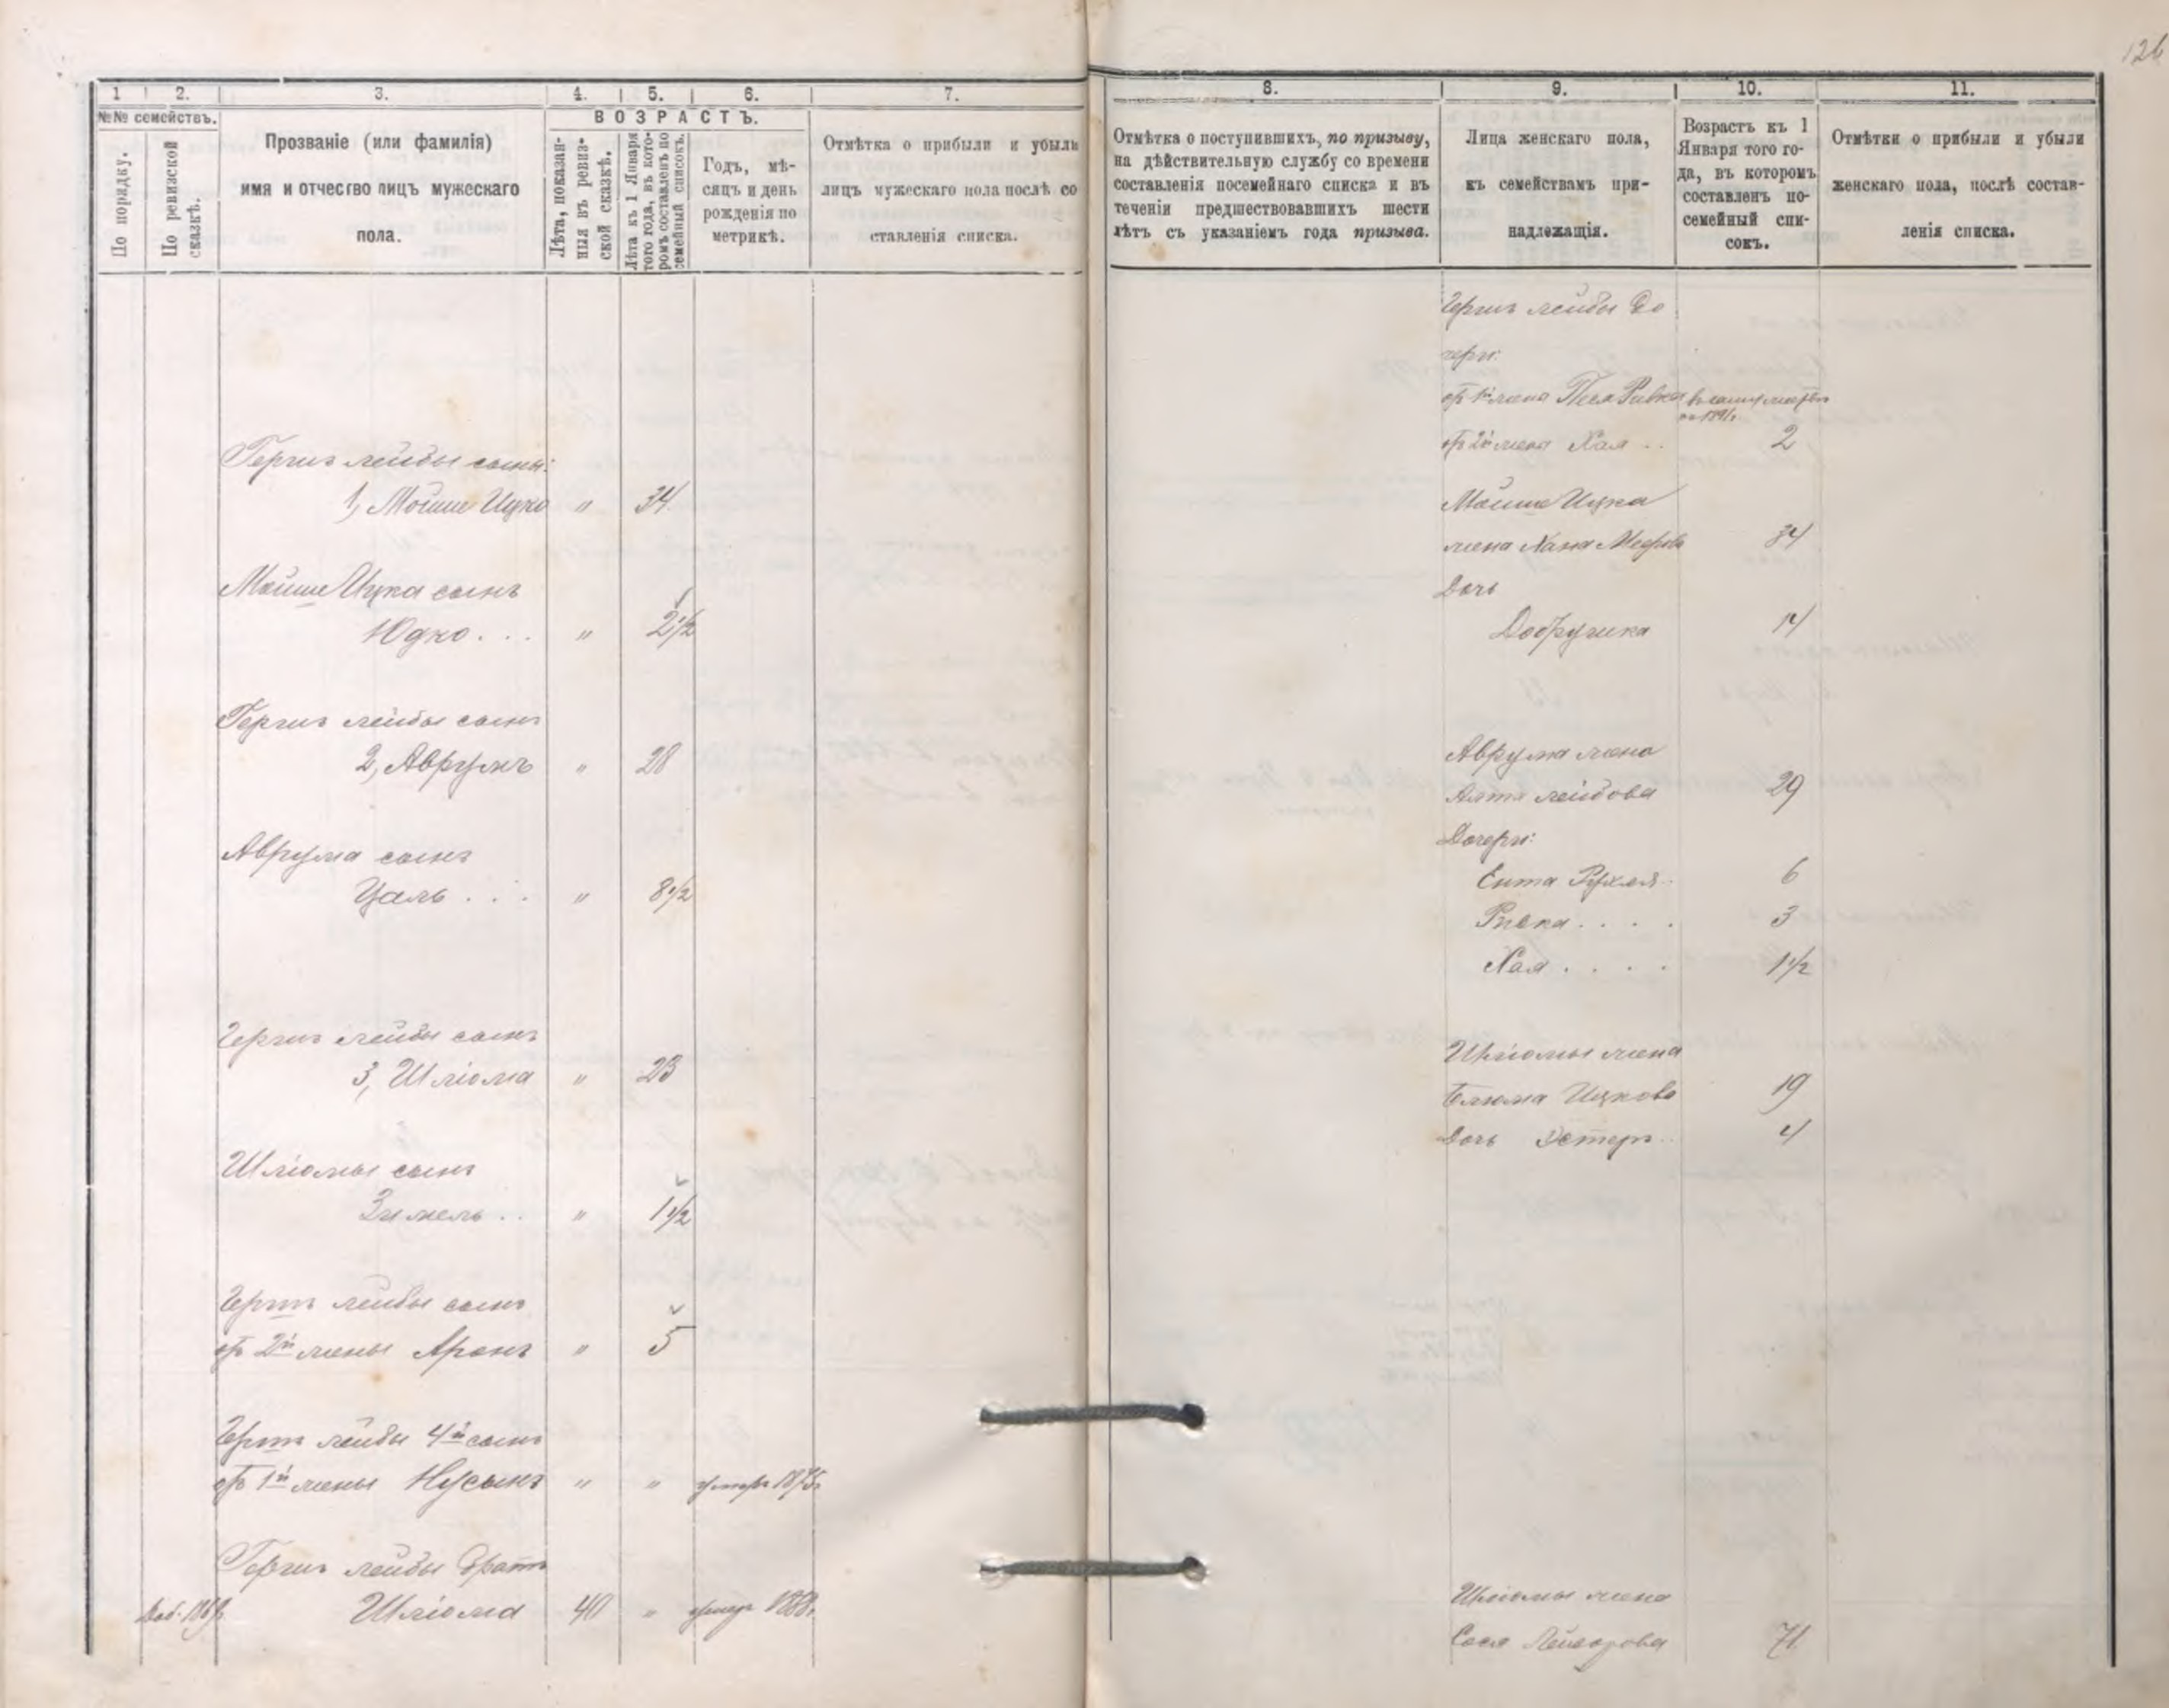 126
1
2.
3.
4.
5.
6.
7.
№№ семействъ.
По порядку.
По ревизской сказкѣ.
Прозваніе (или фамилія)
имя и отчество лицъ мужескаго
пола.
ВОЗРАСТЪ.
Лѣта, показан-
ныя въ ревиз-
ской сказкѣ.
Лѣта къ 1 Января
того года, въ кото-
ромъ составленъ по
семейный списокъ.
Годъ, мѣ-
сяцъ и день
рожденія по
метрикѣ.
Отмѣтка о прибыли и убыли
лицъ мужескаго пола послѣ со
ставленія списка.
Гершъ Лейбы сыны:
1, Мойше Ицко " 34
Мойше Ицка сынъ
Юдко... " 2 1/2
Герша Лейбы сынъ
2, Аврумъ " 28
Аврума сынъ
Цаль... " 8 1/2
Герша Лейбы сынъ
3, Шліома " 23
Шліомы сынъ
Зимель.. " 1 1/2
Герша Лейбы сынъ
отъ 2й жены Аронъ " 5
Герша Лейбы 4й сынъ
отъ 1й жены Нусынъ " " умеръ 1875г.
Герша Лейбы братъ
Шліома 40 " умеръ 1888г.
8.
9.
10.
11.
Отмѣтка о поступившихъ, по призыву,
на дѣйствительную службу со времени
составленія посемейнаго списка и въ
теченіи предшествовавшихъ шести
лѣтъ съ указаніемъ года призыва.
Лица женскаго пола,
къ семействамъ при-
надлежащія.
Возрастъ къ 1
Января того го-
да, въ которомъ
составленъ по-
семейный спи-
сокъ.
Отмѣтки о прибыли и убыли
женскаго пола, послѣ состав-
ленія списка.
Герша Лейбы до
чери:
отъ 1й жена Песя Ривка
отъ 2й жена Хая.. 2
Мойше Ицка
жена Хана Меерова 34
Дочь
Добручика 14
Аврума жена
Лейбова 29
Дочери:
Ента Рухля.. 6
Ривка.... 3
Хая.... 1 1/2
Шліомы жена
Блюма Ицкова 19
Дочь Эстеръ.. 4
Шліомы жена
Сося Лейзорова 71